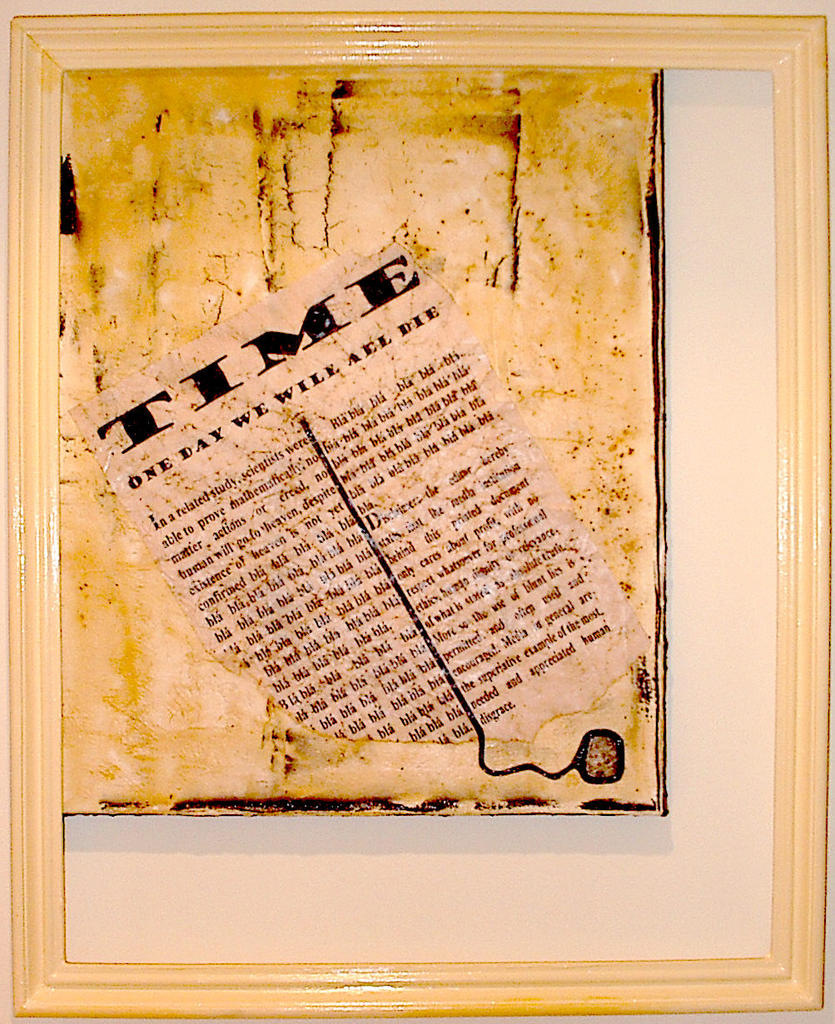 TIME
ONE DAY WE WILL ALL DIE
In a related study, scientists were
able to prove mathematically, no
matter actions or creed, no
human will go to heaven, despite
existence of heaven is not yet
confirmed blá blá blá blá blá
blá blá blá blá blá blá
blá blá blá blá blá blá
blá blá blá blá blá blá
blá blá blá blá blá
blá blá blá blá blá
Blá blá blá blá blá
blá blá blá blá blá
blá blá blá blá
blá blá blá
blá blá
Blá blá blá blá blá blá
blá blá blá blá blá blá
blá blá blá blá blá blá
blá blá blá blá blá blá
blá blá blá blá blá blá
Disclaimer: the editor hereby
that the media institution
behind this printed document
only cares about profit, with no
respect whatsoever for professional
ethics, human dignity or relevance
of what is stated as absolute truth.
More so the use of blunt lies is
permitted and often and
encouraged. Media in general are
the superlative example of the most
needed and appreciated human
disgrace.